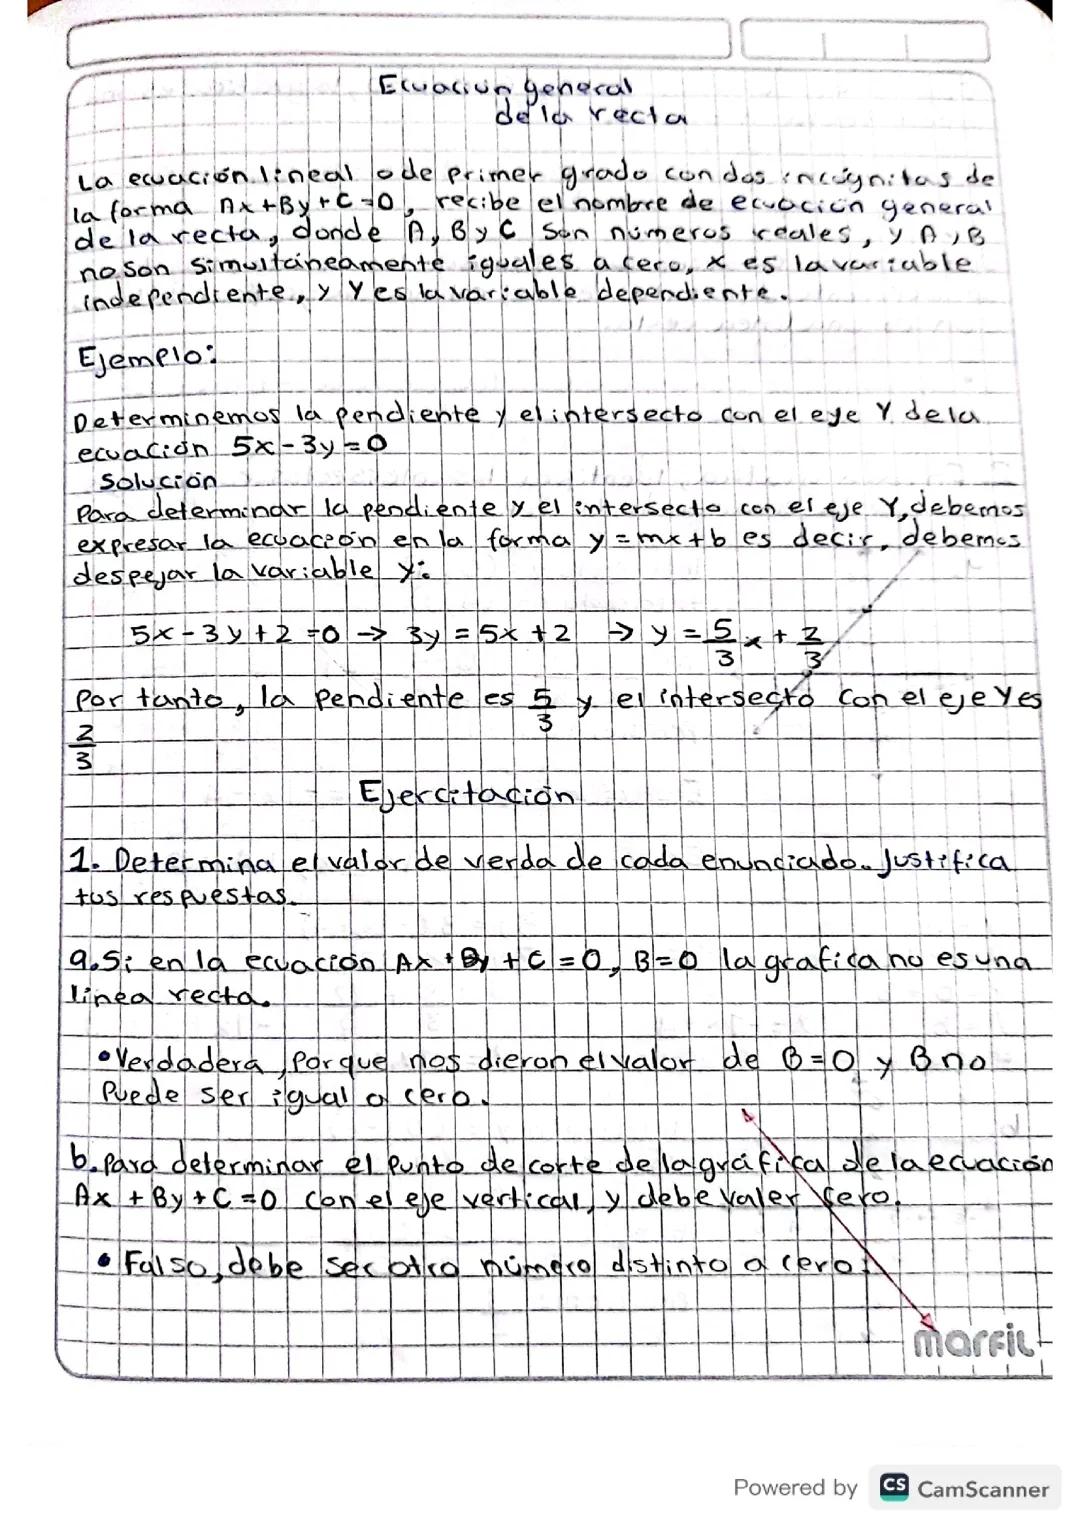 Ecuación general
de la recta
La ecuación lineal o de primer grado con dos incógnitas de
la forma Ax+By+C=0, recibe el nombre de ecuación general
de la recta, donde A, B y C son números reales, y A y B
no son simultáneamente iguales a cero, x es la variable
independiente, y Y es la variable dependiente.
Ejemplo:
Determinemos la pendiente y el intersecto con el eye Y de la
ecuación 5x-3y=0
Solución
Para determinar la pendiente y el intersecto con el eje Y, debemos
expresar la ecuación en la forma y=mx+b es decir, debemos
despejar la variable y:
5x-3y+2=0 → 3y=5x+2 → y=5/3 x+2/3
Por tanto, la pendiente es 5/3 y el intersecto con el eje Y es
2/3
Ejercitación
1. Determina el valor de verda de cada enunciado. Justifica
tus respuestas.
a. Si en la ecuación Ax+By+C=0, B=0 la grafica no es una
linea recta.
• Verdadera, Porque nos dieron el valor de B=0 y B no
Puede ser igual a cero.
b. Para determinar el punto de corte de la gráfica de la ecuación
Ax+By+C=0 con el eje vertical, y debe valer cero.
• Falso, debe ser otro número distinto a cero.
marfil
Powered by CS CamScanner